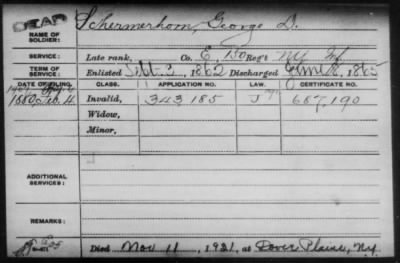 DEAD Schermerhorn, George D.
NAME OF SOLDIER:
SERVICE: Late rank, Co. E, 150 Reg't NY Inf.
TERM OF SERVICE: Enlisted Sept. 3, 1862 Discharged June 8, 1865
DATE OF FILING. CLASS. APPLICATION NO. LAW. CERTIFICATE NO.
1880 Feb. 4. Invalid, 343 185 J 687,190
Widow,
Minor,
ADDITIONAL SERVICES:
REMARKS:
Died Nov 11, 1921, at Dover Plains, N.Y.